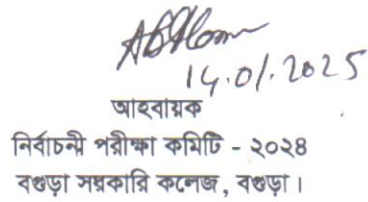 14.01.2025
আহবায়ক
নির্বাচনী পরীক্ষা কমিটি - ২০২৪
বগুড়া সরকারি কলেজ, বগুড়া।